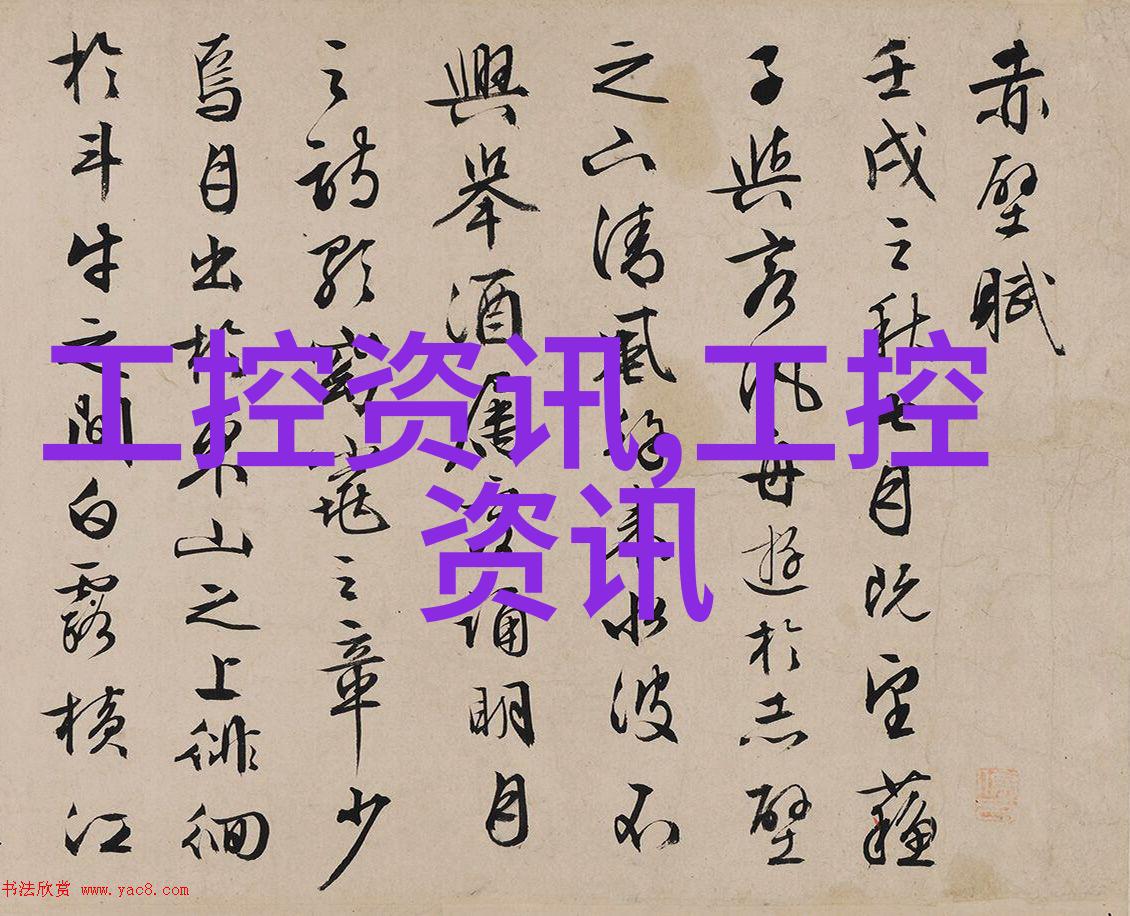 赤壁賦
壬戌之秋七月既望蘇
子與客汎舟遊於赤壁
之下清風徐來水波不
興舉酒屬客誦明月
之詩歌窈窕之章少
焉月出於東山之上徘徊
於斗牛之間白露橫江
工控资讯,工控
资讯
书法欣赏 www.yac8.com